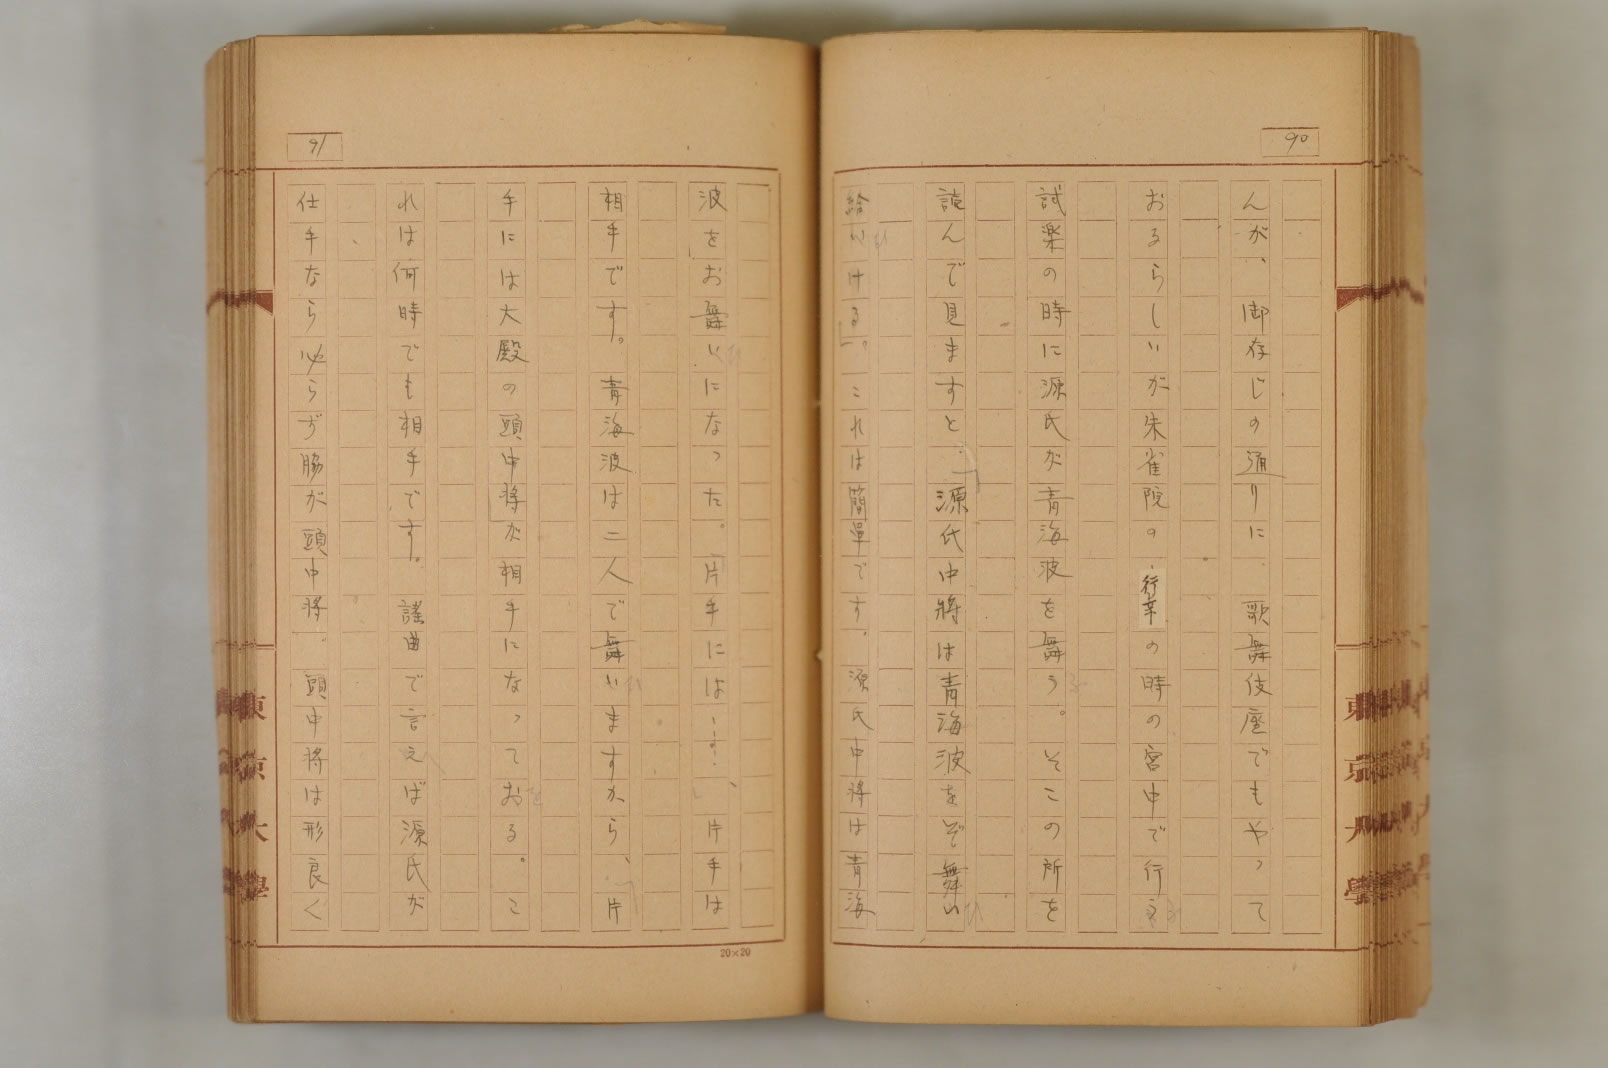 90
んが、御存じの通りに、歌舞伎座でもやって
おるらしいが朱雀院の行幸の時の宮中で行う
試楽の時に源氏が青海波を舞う。そこの所を
読んで見ますと、「源氏中將は青海波をぞ舞い
給いける」。これは簡單です。源氏中将は青海
91
波をお舞いになった。「片手には……」、片手は
相手です。青海波は二人で舞いますから、片
手には大殿の頭中将が相手になっておる。こ
れは何時でも相手です。謡曲で言えば源氏が
仕手なら必らず脇が頭中将、頭中将は形良く
20×20
東京大學
東京大學